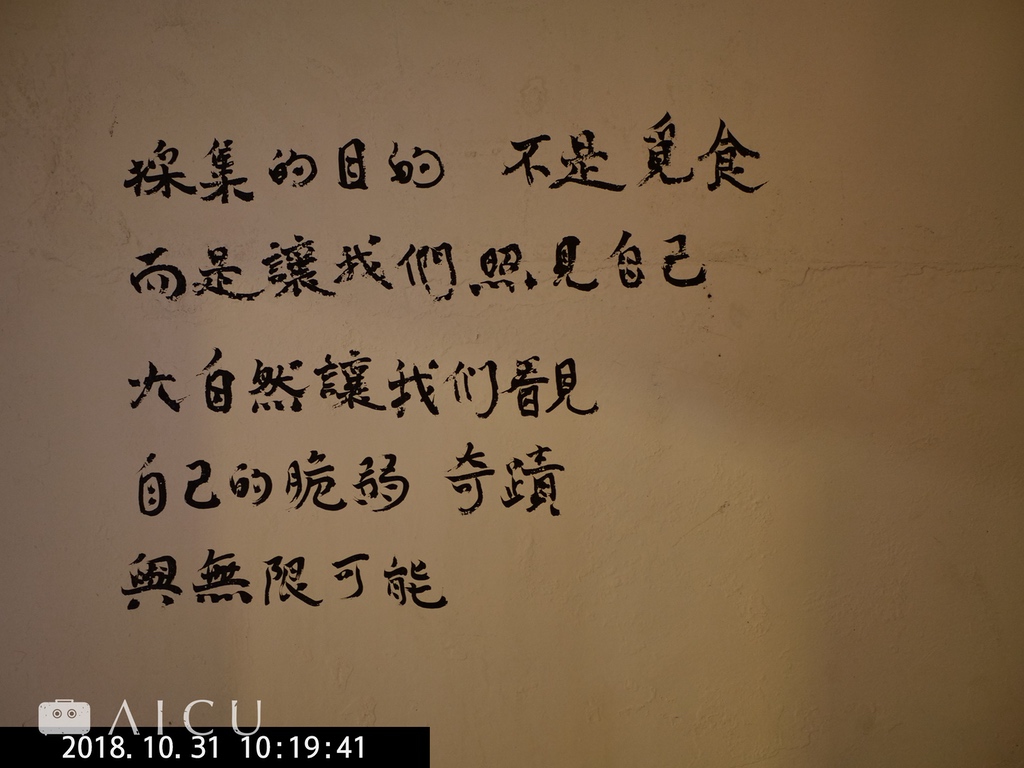 採集的目的 不是覓食
而是讓我們照見自己
大自然讓我们看見
自己的脆弱 奇蹟
與無限可能
AICU
2018.10.31 10:19:41